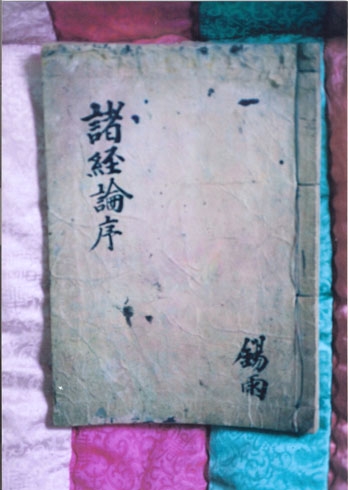 諸経論序
錫雨